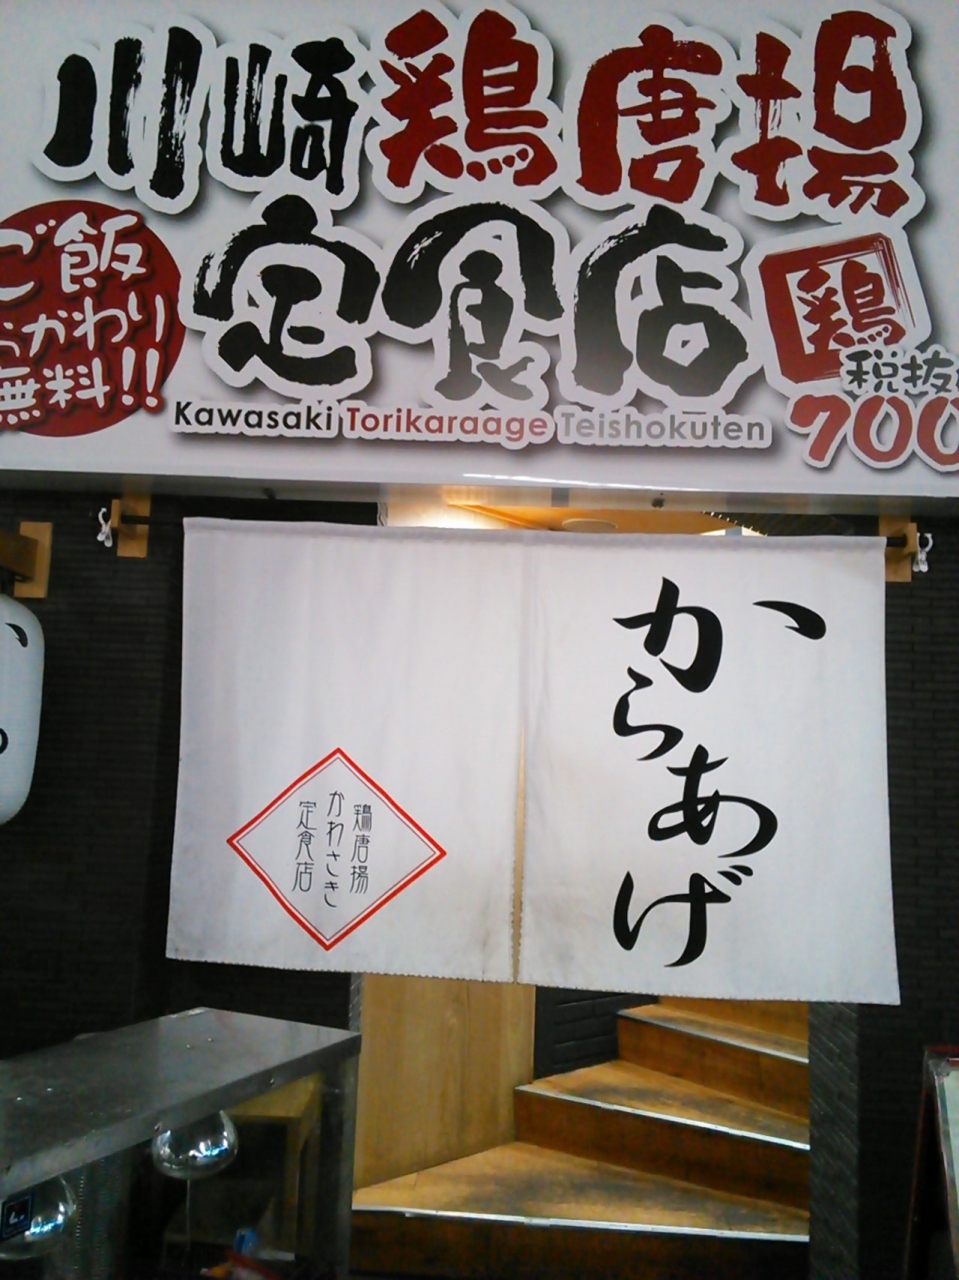 川崎鶏唐揚
定食店
ご飯
おかわり
無料!!
鶏
税抜
700
Kawasaki Torikaraage Teishokuten
からあげ
鶏唐揚
かわさき
定食店